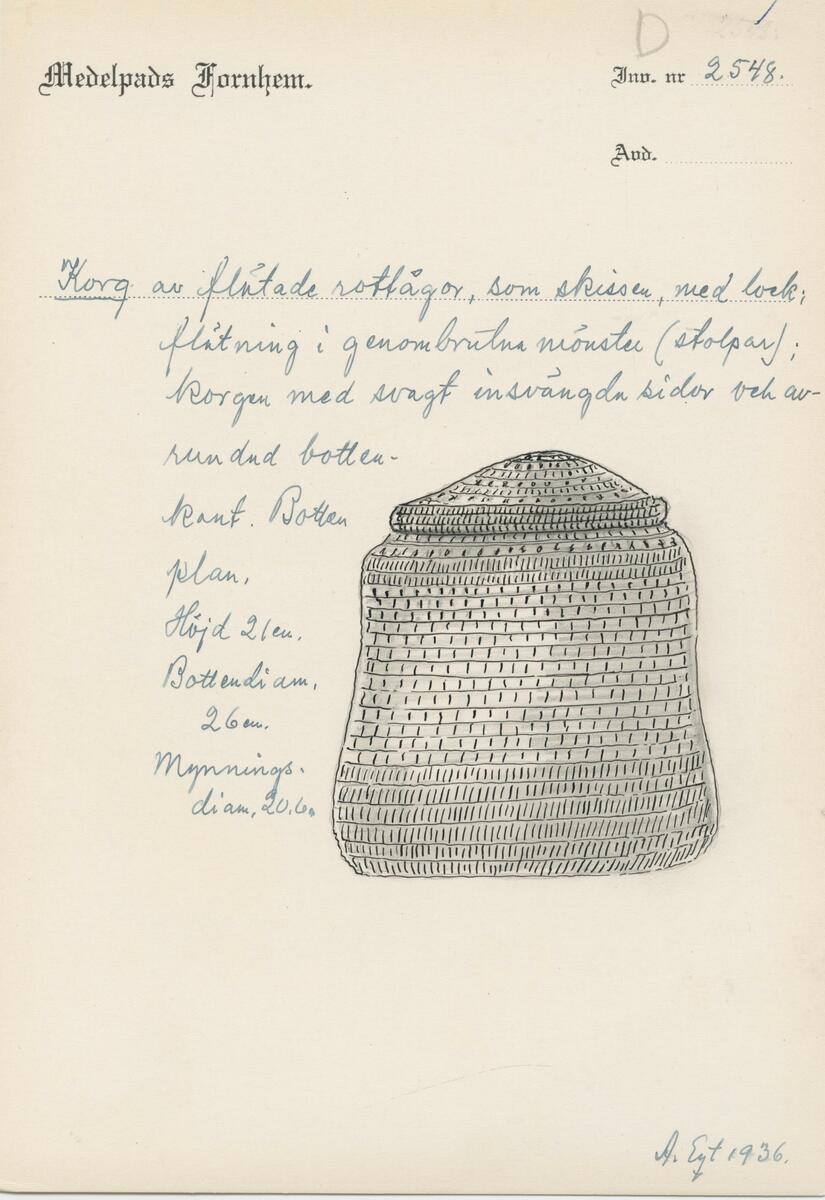 D
Medelpads Fornhem.
Inv. nr 2548.
Avd.
Korg av flätade rottågor, som skissen, med lock;
flätning i genombrutna mönster (stolpar);
korgen med svagt insvängda sidor och av-
rundad botten-
kant. Botten
plan.
Höjd 21 cm.
Bottendiam.
26 cm.
Mynnings-
diam. 20,6
A. Eyt 1936.